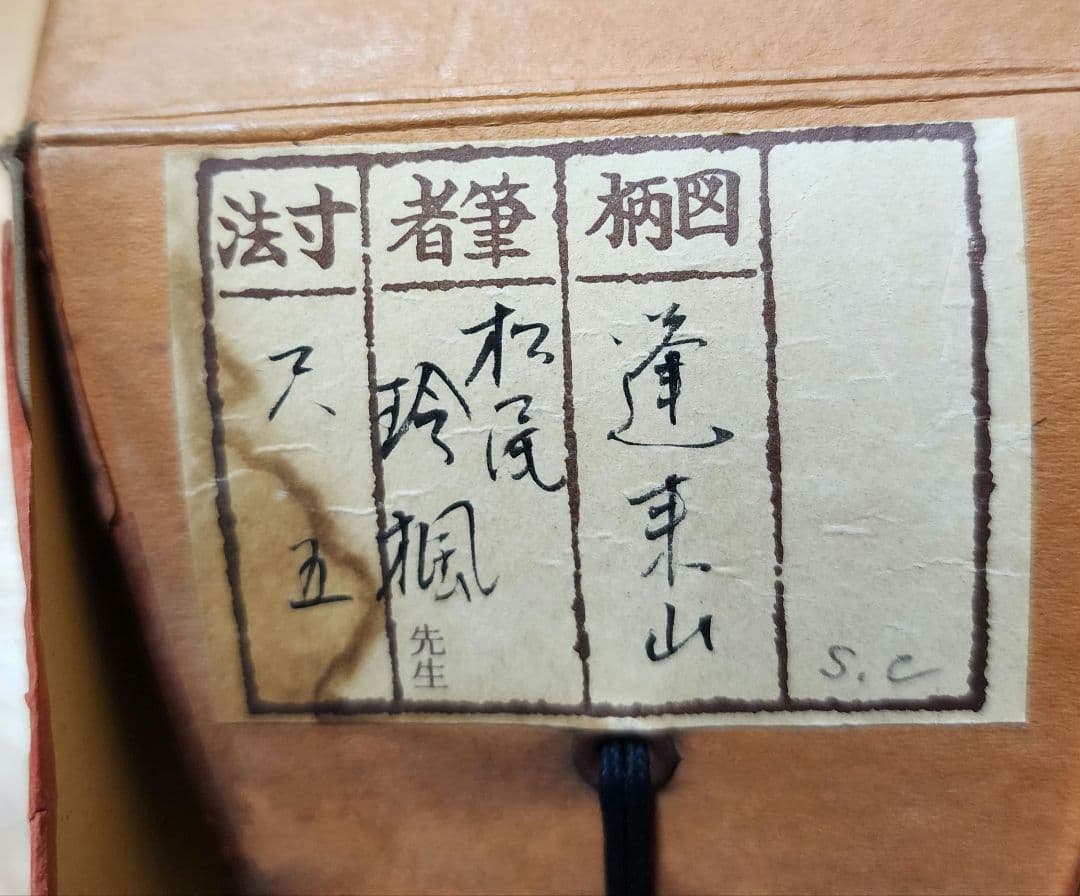 図柄
蓬来山
筆者
松尾
玲楓
先生
寸法
尺五
S.C